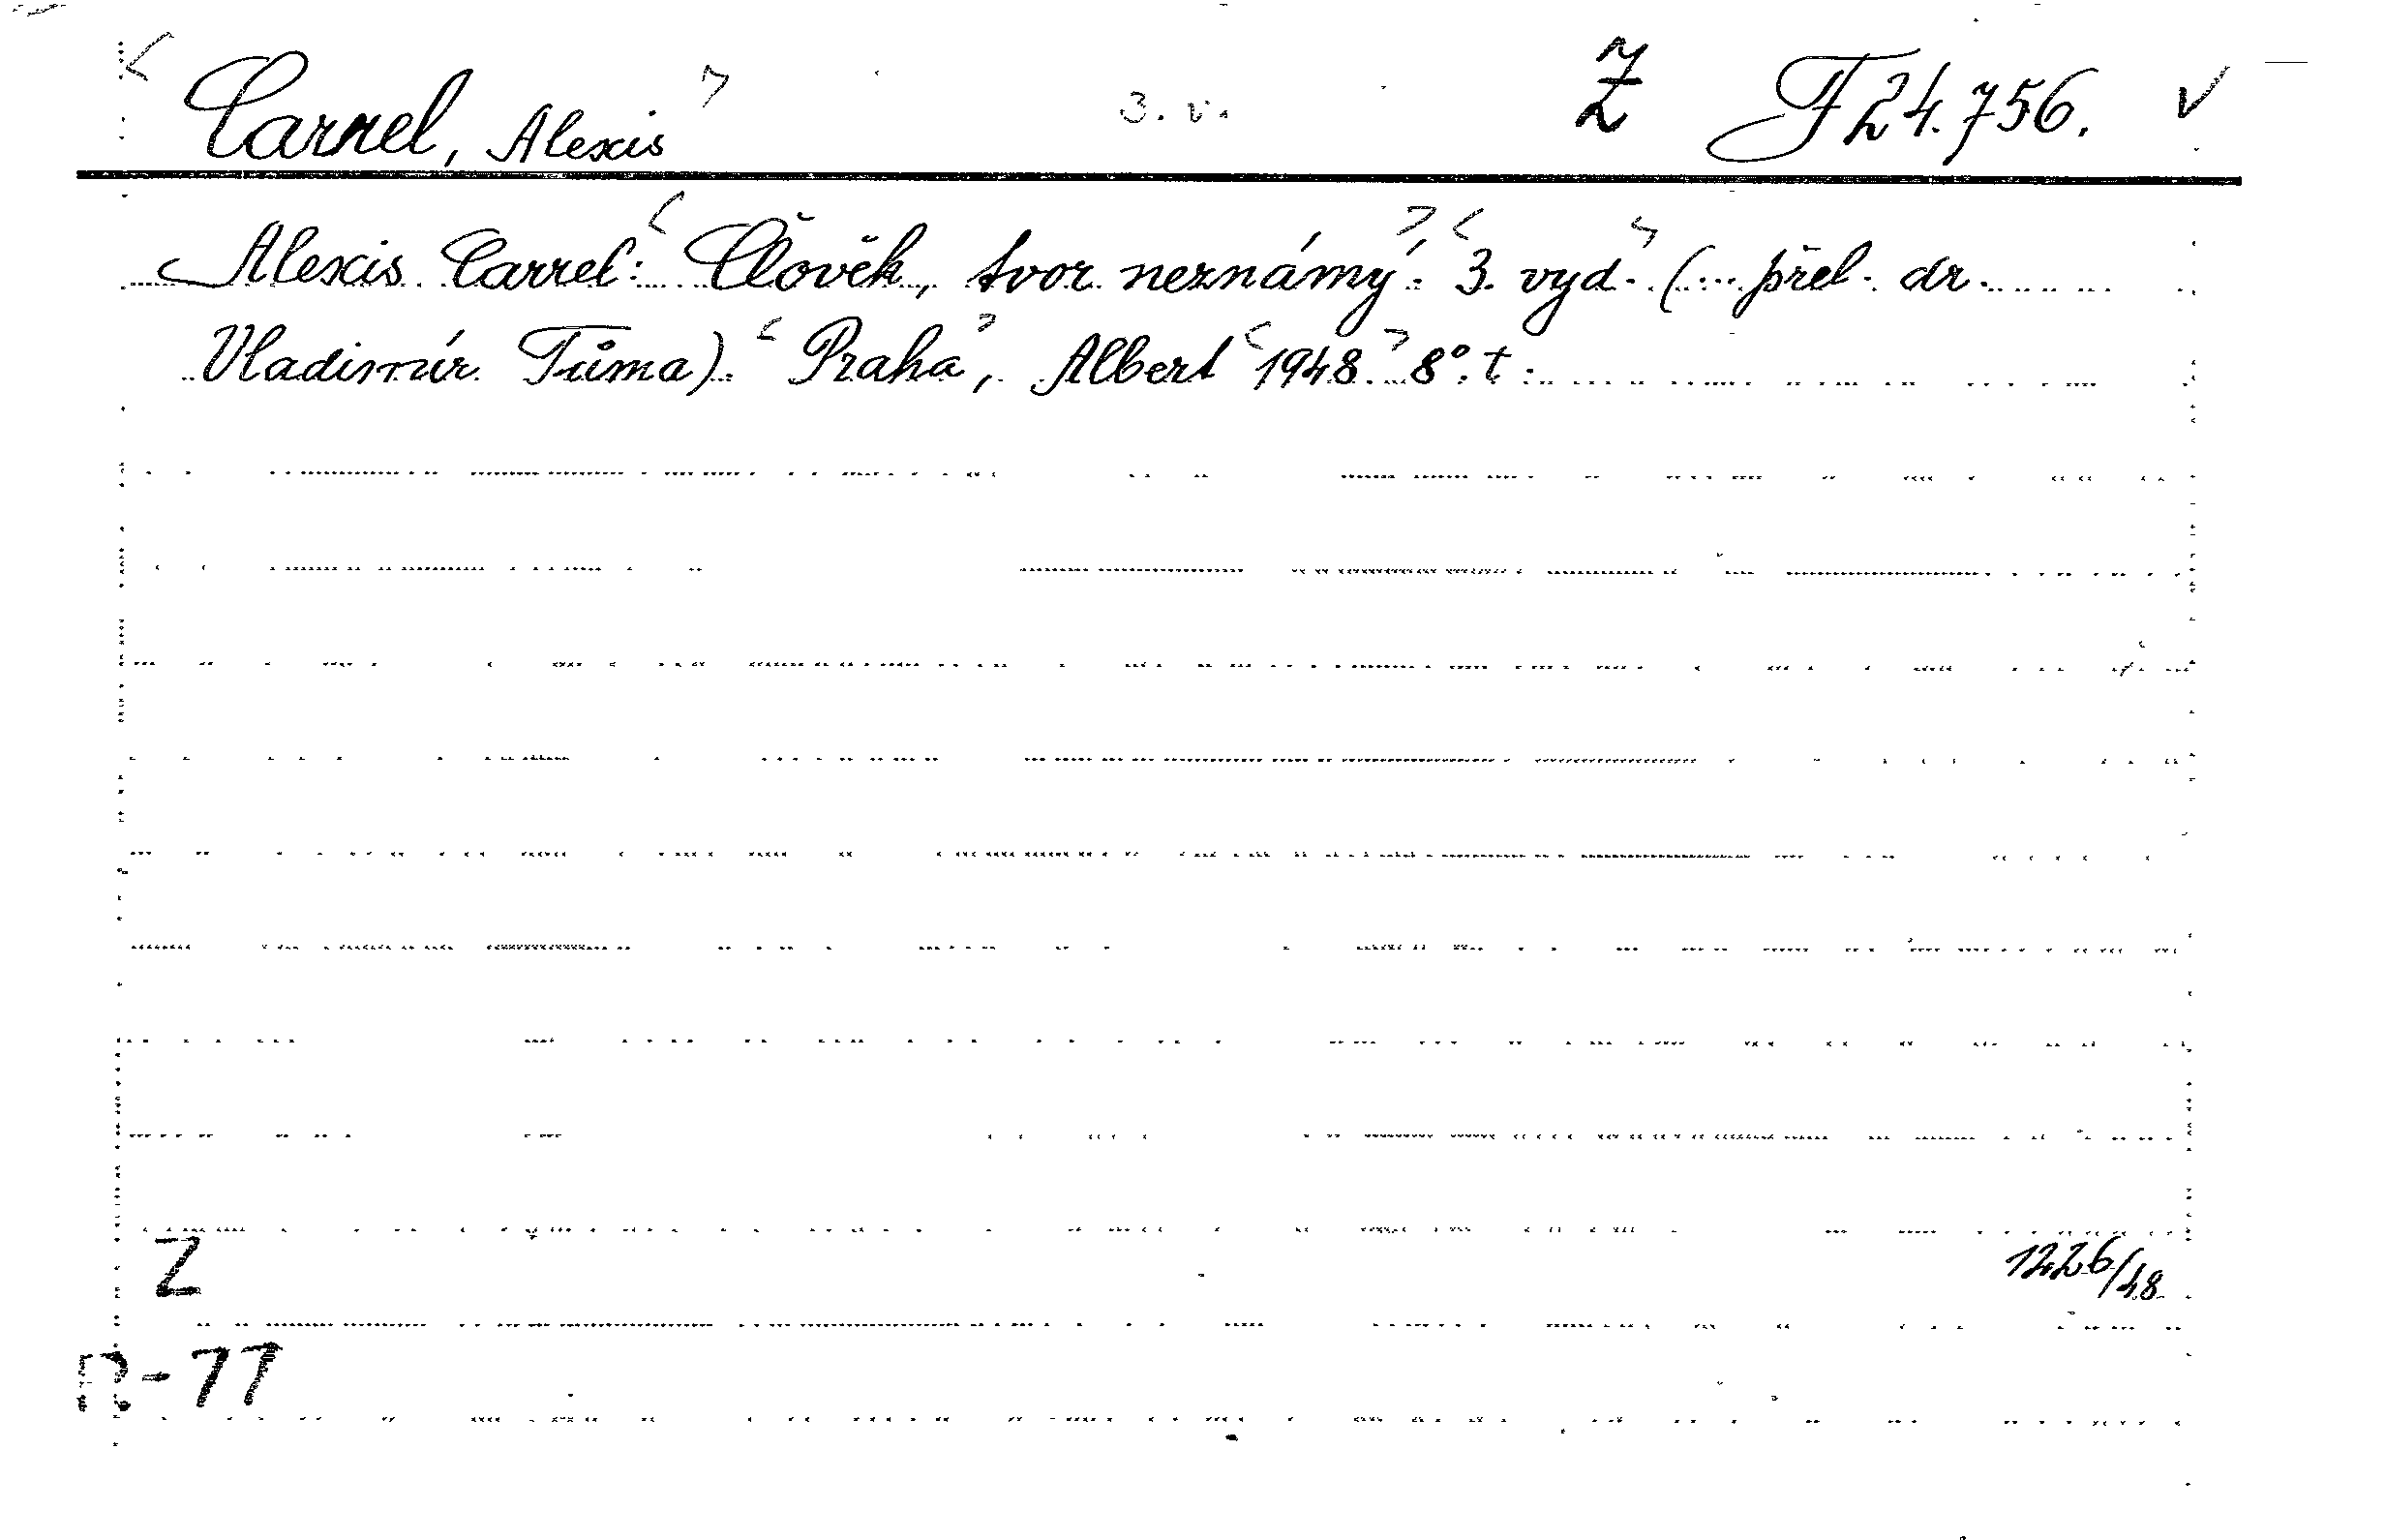 Carrel, Alexis 3. v. Z F 24.756.
Alexis Carrel: Člověk, tvor neznámý. 3. vyd. (... přel. dr.
Vladimír Tůma). Praha, Albert 1948. 8°. t.
Z 1226/48
R-77